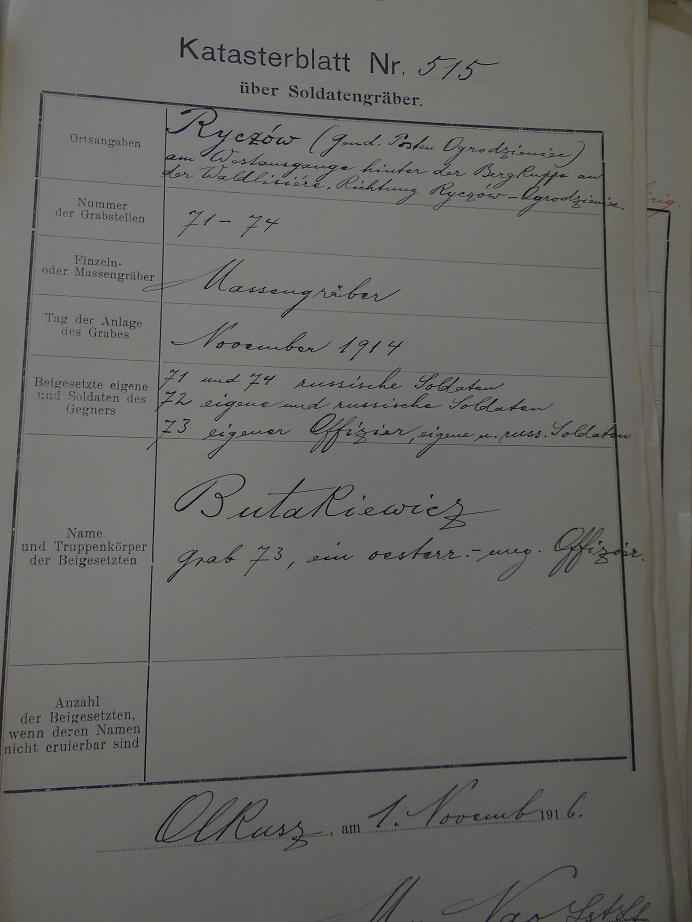 Katasterblatt Nr. 515
über Soldatengräber.
Ortsangaben
Ryczów (Gend. Posten Ogrodzieniec)
am Westausgange hinter der Bergkuppe an
der Waldlisiére, Richtung Ryczów-Ogrodzieniec.
Nummer
der Grabstellen
71 - 74
Einzeln-
oder Massengräber
Massengräber
Tag der Anlage
des Grabes
November 1914
Beigesetzte eigene
und Soldaten des
Gegners
71 und 74 russische Soldaten
72 eigene und russische Soldaten
73 eigener Offizier, eigene u. russ. Soldaten
Name
und Truppenkörper
der Beigesetzten
Butakiewicz
grab 73, ein oesterr.-ung. Offizier.
Anzahl
der Beigesetzten,
wenn deren Namen
nicht eruierbar sind
Olkusz, am 1. Novemb 1916.